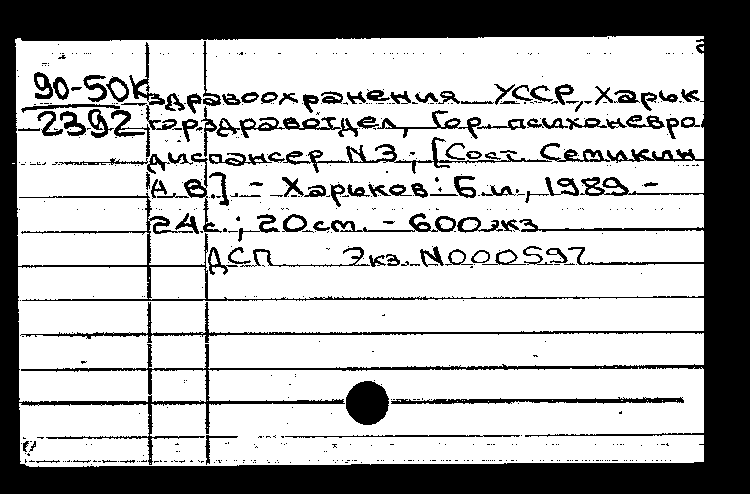 90-50к здравоохранения УССР, Харьк
2392 горздравотдел, Гор. психоневро
диспансер N3; [Сост. Семикин
А.В.]. - Харьков: Б.и., 1989. -
24с.; 20см. - 600экз
ДСП Экз. N000597